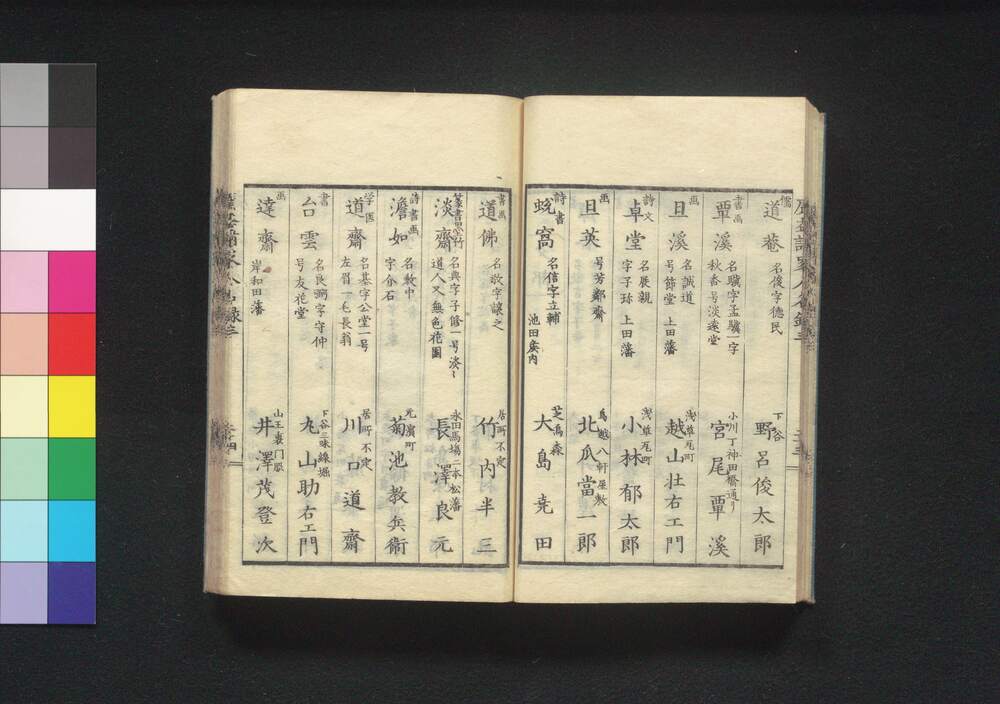 儒
道菴
名俊字德民
下谷
野呂俊太郎
書画
覃溪
名驥字孟驥一字
秋香号淡遠堂
小川丁神田橋通リ
宮尾覃溪
画
旦溪
名誠道
号節堂 上田藩
浅草瓦町
越山壮右エ門
詩文
卓堂
名展親
字子孫 上田藩
浅草瓦町
小林郁太郎
画
旦英
号芳鄰齋
鳥越八軒屋敷
北爪當一郎
詩書
蛻窩
名信字立輔
池田廣内
芝烏森
大島堯田
書画
道佛
名敬字讓之
居所不定
竹内半三
篆書墨竹
淡齋
名典字子脩一号淡々
道人又無色花圃
永田馬場二本松藩
長澤良元
詩書画
澹如
名教中
字介石
元濱町
菊池教兵衛
学医
道齋
名基字公堂一号
左眉一毛長翁
居所不定
川口道齋
書
台雲
名良弼字守仲
号友花堂
下谷三味線堀
丸山助右エ門
画
達齋
岸和田藩
山王裏門脇
井澤茂登次